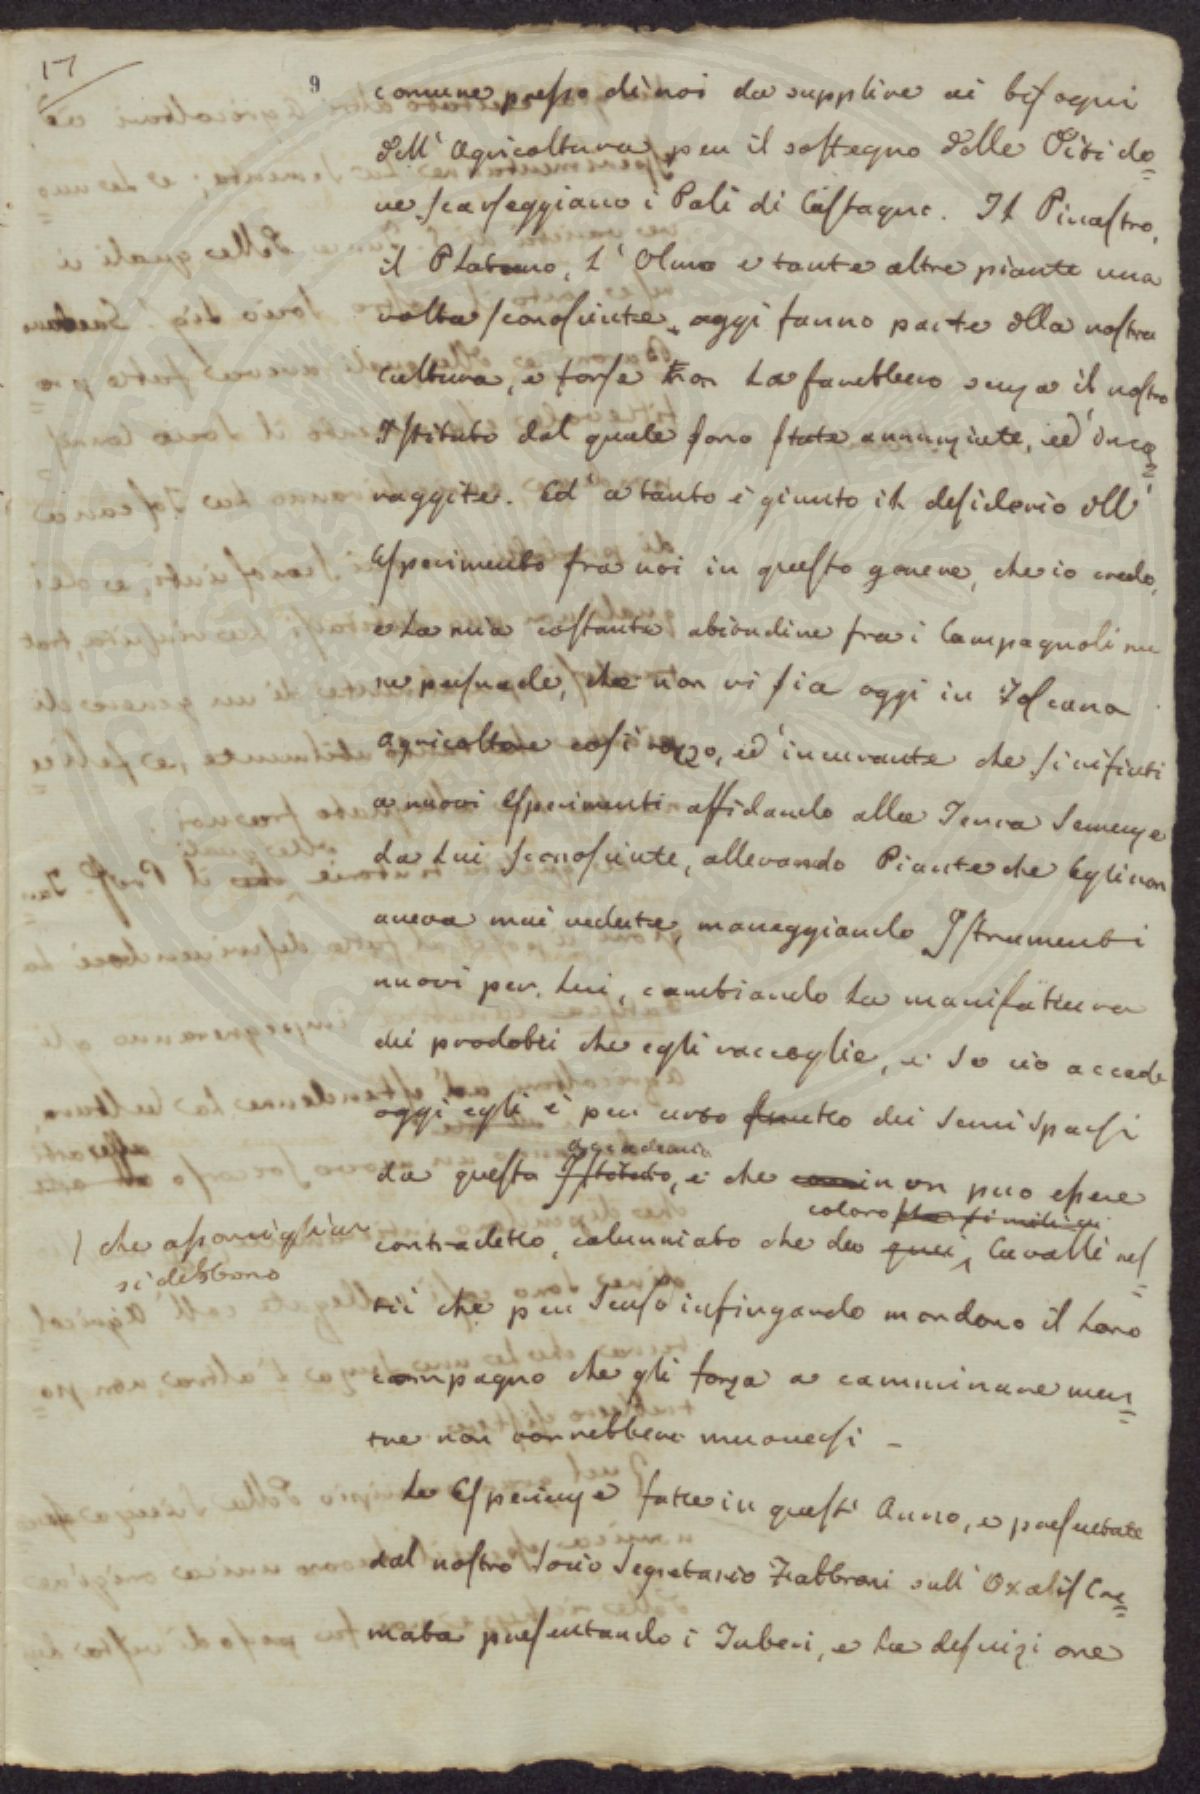 17
9
comune presso di noi da supplire ai bisogni
dell' Agricoltura per il sostegno delle Viti do=
ve scarseggiano i Pali di Castagno. Il Pinastro,
il Platano, l' Olmo e tante altre piante una
volta sconosciute, oggi fanno parte della nostra
cultura, e forse non la farebbero senza il nostro
Istituto dal quale sono state annunziate, ed' inco=
raggite. Ed' a tanto è giunto il desiderio dell'
Esperimento fra noi in questo genere, che io credo,
e la mia costante abitudine fra i Campagnoli me
ne persuade, che non vi sia oggi in Toscana
Agricoltore così rozzo, ed' incurante che si rifiuti
a nuovi Esperimenti affidando alla Terra Semenze
da lui sconosciute, allevando Piante che Egli non
aveva mai vedute, maneggiando Istrumenti
nuovi per lui, cambiando la manifattura
dei prodotti che egli raccoglie, e se ciò accade
oggi egli è pur certo frutto dei semi sparsi
da questa Istituto, e che non può essere
Accademia
coloro
contradetto, calunniato che da quei, Cavalli res=
/ che assomigliar
si debbono
tii che per senso infingardo mordono il loro
compagno che gli forza a camminare men=
tre non vorrebbero muoversi -
Le Esperienze fatte in quest' Anno, e presentate
dal nostro Socio Segretario Fabbroni sull' Oxalis Cre=
nata presentando i Tuberi, e la descrizione